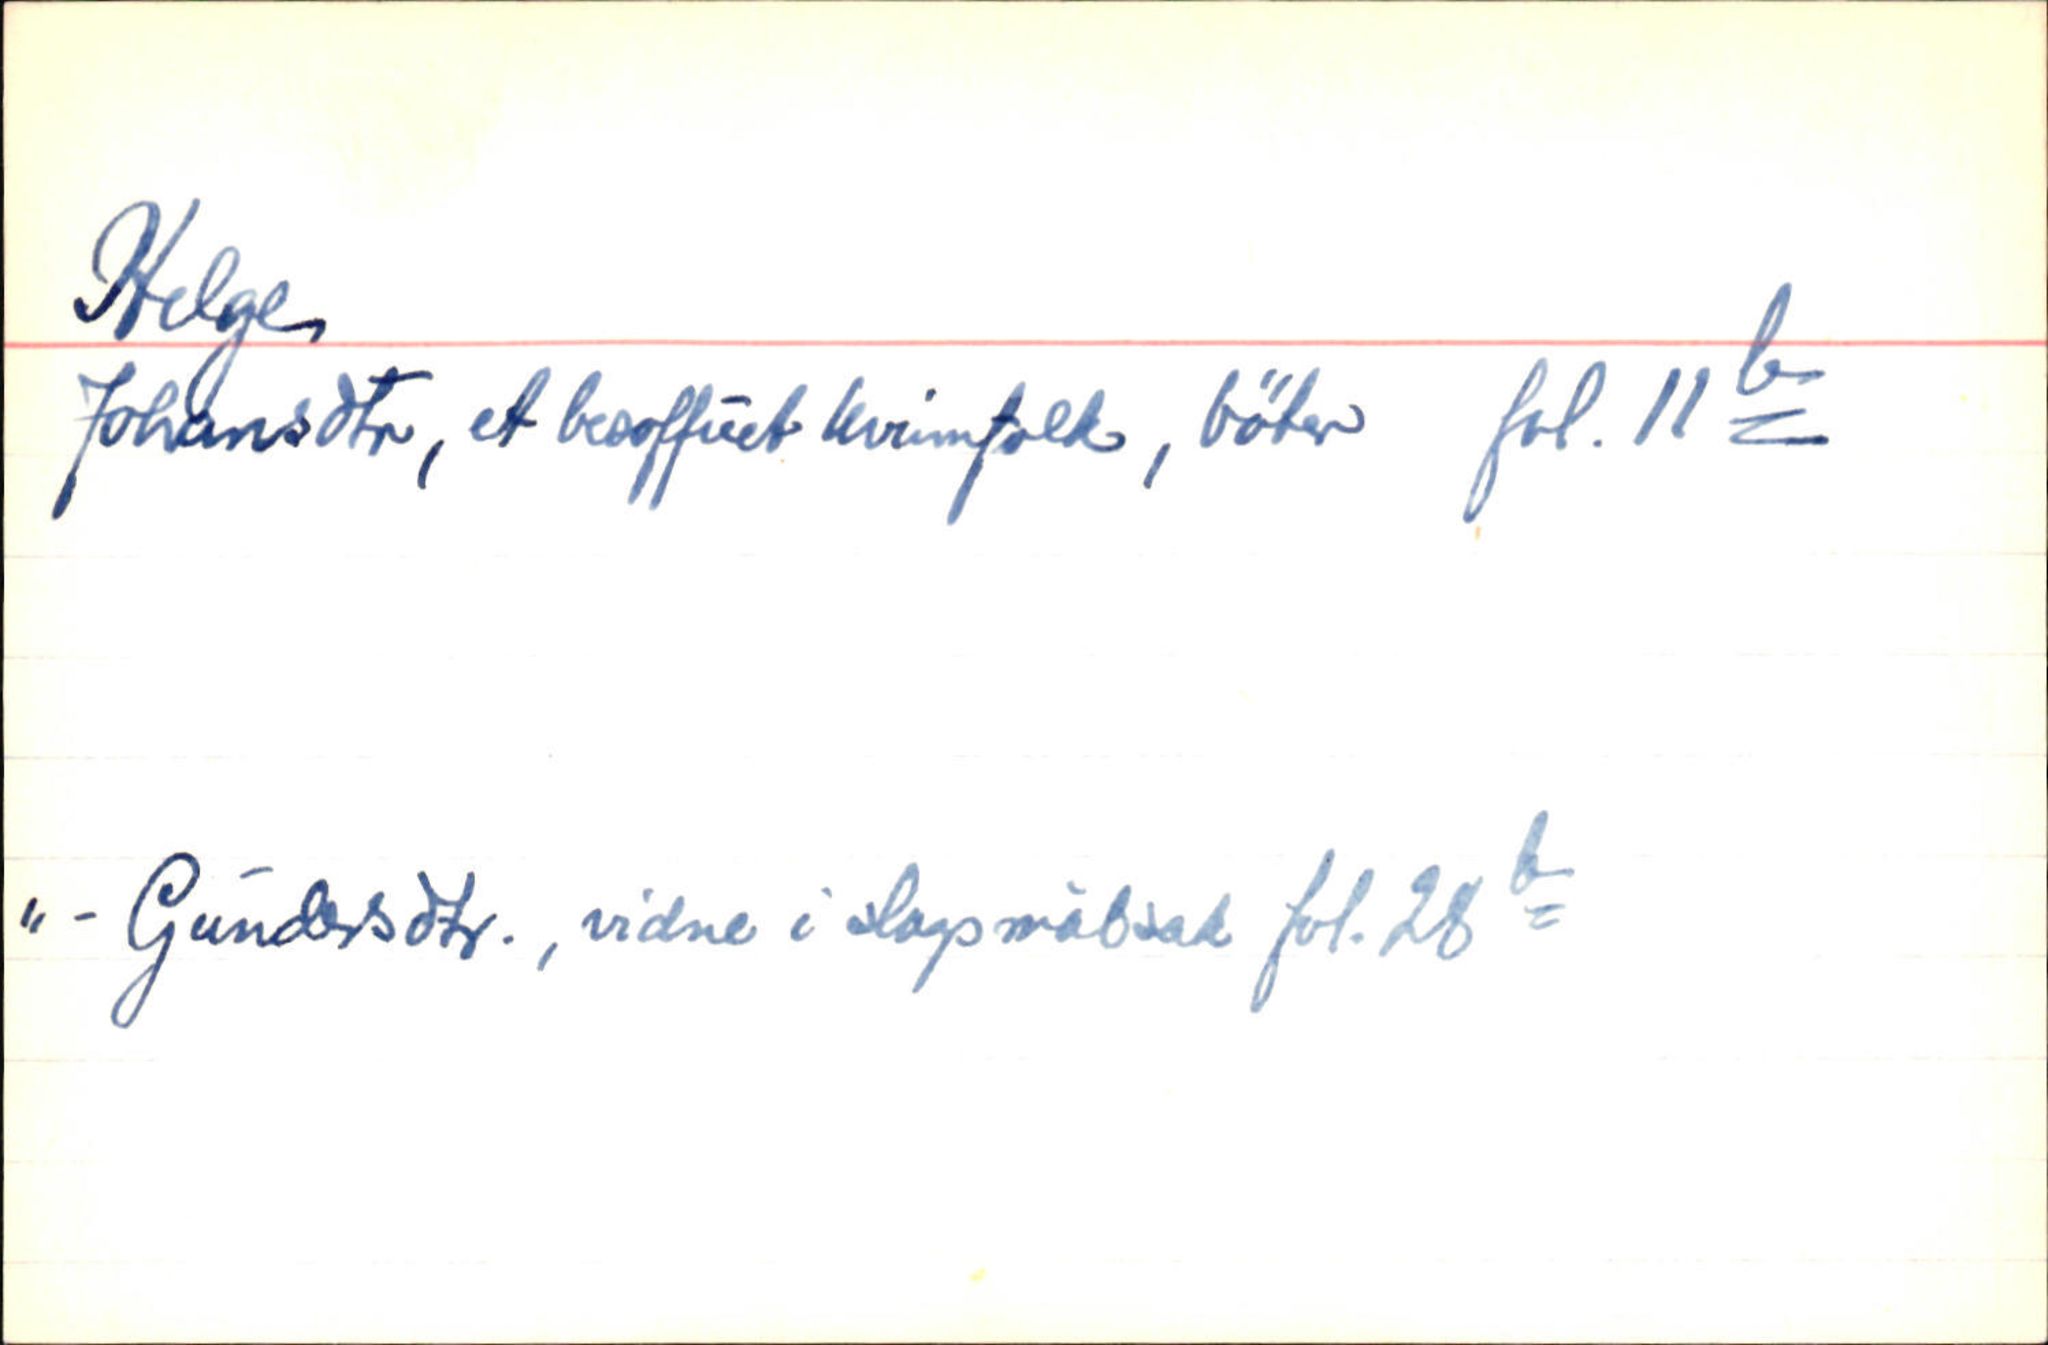 Helge
Johansdtr, et besoffuet kvinnfolk, böter fol. 11 b
"- Gundersdtr., vidne i slagsmålsak fol. 28 b